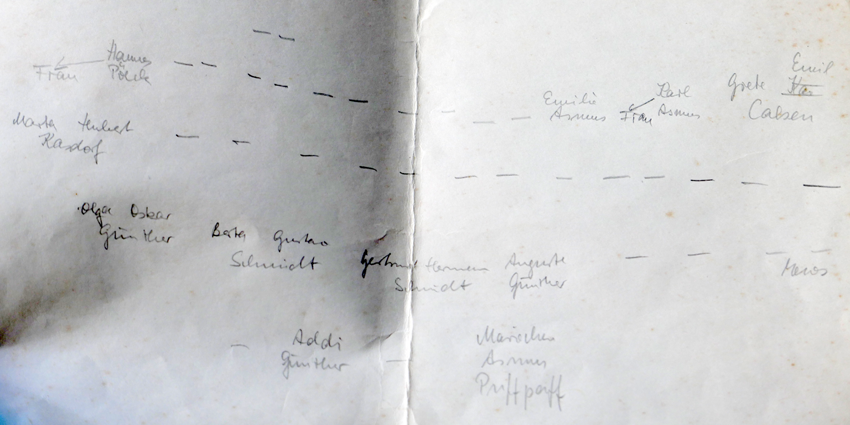 Hannes
Frau
Emilie
Asmus
Frau
Karl
Asmus
Grete
Emil
Calsen
Marta Hubert
Rasdorf
Olga Oskar
Günther
Berta Gustav
Schmidt
Gertrud Hermann
Schmidt
Auguste
Günther
Addi
Günther
Mariechen
Asmus